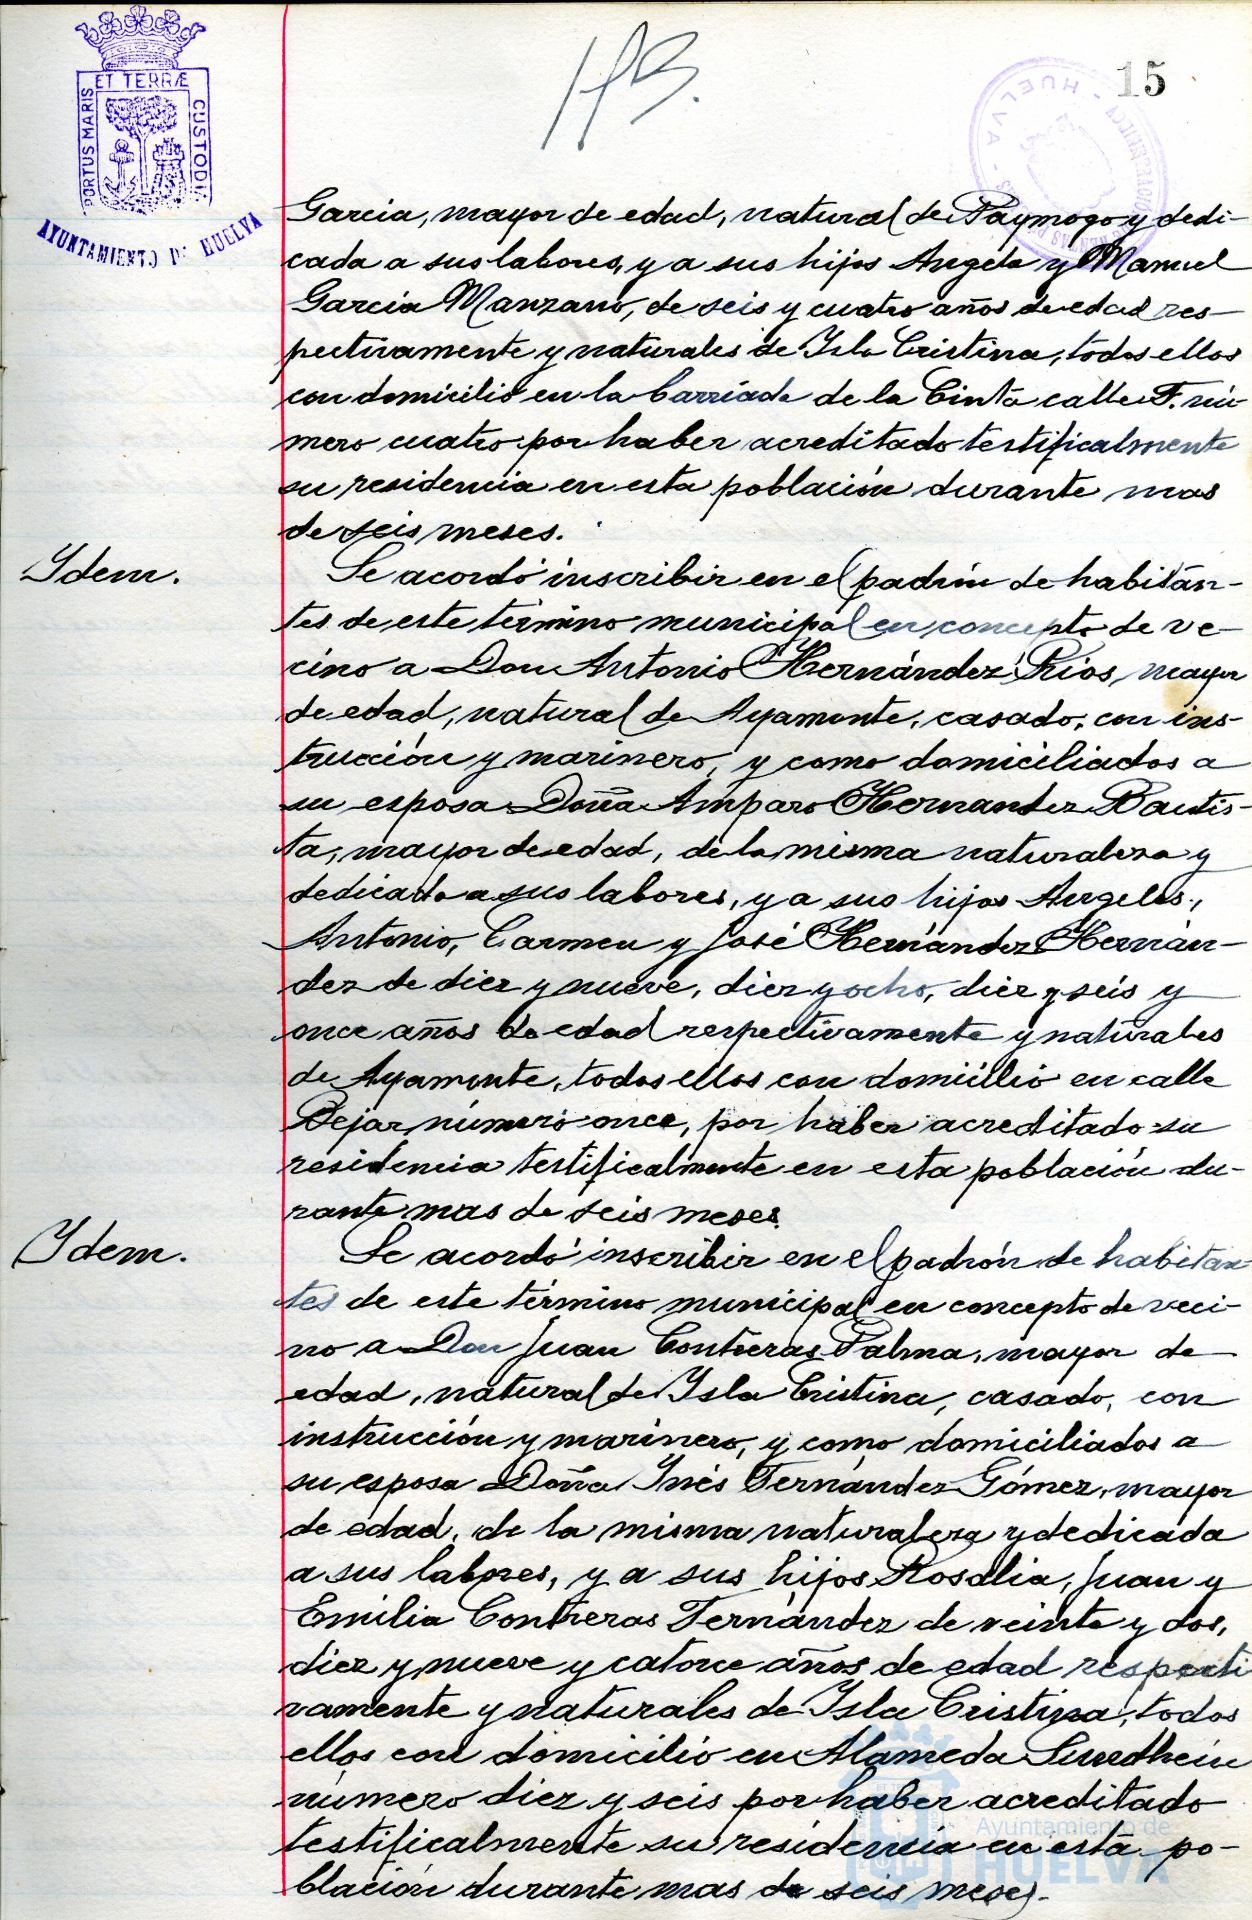 PORTUS MARIS ET TERRÆ CUSTODIA
AYUNTAMIENTO DE HUELVA
15
HUELVA
Garcia, mayor de edad, natural de Paymogo y dedi-
cada a sus labores, y a sus hijos Angela y Manuel
García Manzano, de seis y cuatro años de edad res-
pectivamente y naturales de Isla Cristina, todos ellos
con domicilio en la barriada de la Cinta calle F. nú-
mero cuatro por haber acreditado testificalmente
su residencia en esta población durante mas
de seis meses.
Ydem.
Se acordó inscribir en el padrón de habitan-
tes de este término municipal en concepto de ve-
cino a Don Antonio Hernández Rios, mayor
de edad, natural de Ayamonte, casado, con ins-
trucción y marinero, y como domiciliados a
su esposa Doña Amparo Hernandez Bautis-
ta, mayor de edad, de la misma naturaleza y
dedicada a sus labores, y a sus hijos Angeles,
Antonio, Carmen y José Hernández Hernán-
dez de diez y nueve, diez y ocho, diez y seis y
once años de edad respectivamente y naturales
de Ayamonte, todos ellos con domicilio en calle
Bejar número once, por haber acreditado su
residencia testificalmente en esta población du-
rante mas de seis meses.
Ydem.
Se acordó inscribir en el padrón de habitan-
tes de este término municipal en concepto de veci-
no a Don Juan Contreras Palma, mayor de
edad, natural de Isla Cristina, casado, con
instrucción y marinero, y como domiciliados a
su esposa Doña Inés Fernández Gómez, mayor
de edad, de la misma naturaleza y dedicada
a sus labores, y a sus hijos Rosalia, Juan y
Emilia Contreras Fernández de veinte y dos,
diez y nueve y catorce años de edad respecti
vamente y naturales de Isla Cristina, todos
ellos con domicilio en Alameda Sundheim
número diez y seis por haber acreditado
testificalmente su residencia en esta po-
blación durante mas de seis meses.
Ayuntamiento de
HUELVA